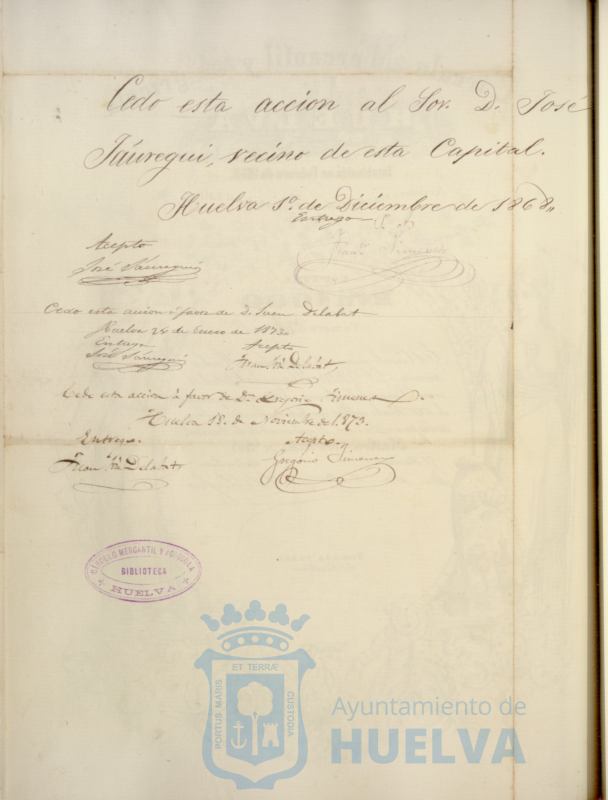 Cedo esta accion al Sor. D. José
Jáuregui, vecino de esta Capital.
Huelva 1º de Diciembre de 1868,,
Entrego
Acepto
José Jáuregui
Cedo esta accion á favor de D. Juan Delabat
Huelva 24 de Enero de 1873.
Entrego Acepto
José Jáuregui Juan Mª Delabat,
Cedo esta accion á favor de Dn. Gregorio Jimenez.
Huelva 1º. de Noviembre del 1.873.
Entrego. Acepto.
Juan Mª Delabat, Gregorio Jimenez
CIRCULO MERCANTIL Y AGRICOLA
BIBLIOTECA
HUELVA
PORTUS MARIS ET TERRÆ CUSTODIA
Ayuntamiento de
HUELVA